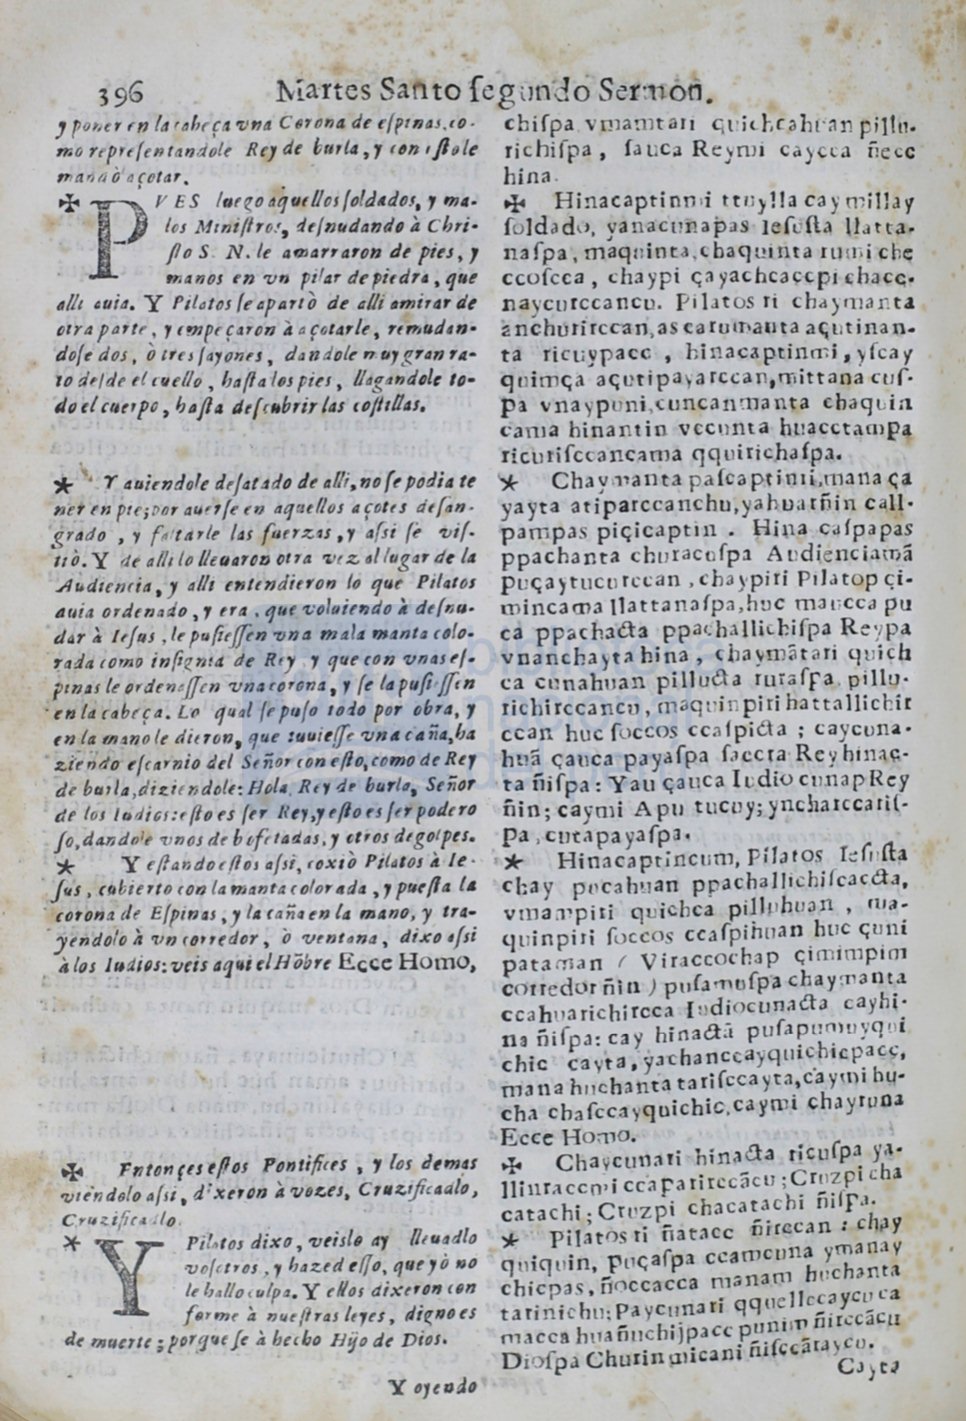 396 Martes Santo ſegundo Sermon.
y poner en la cabeça vna Corona de eſpinas, co-
mo repreſentandole Rey de burla, y con eſto le
mandò açotar.
✠ PVES luego aquellos ſoldados, y ma-
los Miniſtros, deſnudando à Chri-
ſto S. N. le amarraron de pies, y
manos en vn pilar de piedra, que
alli auia. Y Pilatos ſe apartò de alli amirar de
otra parte, y empeçaron à açotarle, remudan-
doſe dos, ò tres ſayones, dandole muy gran ra-
to deſde el cuello, haſta los pies, llagandole to-
do el cuerpo, haſta deſcubrir las coſtillas.
* Y auiendole deſatado de alli, no ſe podia te
ner en pie; por auerſe en aquellos açotes deſan-
grado, y faltarle las fuerzas, y aſsi ſe viſ-
tiò. Y de alli lo lleuaron otra vez al lugar de la
Audiencia, y alli entendieron lo que Pilatos
auia ordenado, y era, que voluiendo à deſnu-
dar à Ieſus, le puſieſſen vna mala manta colo-
rada como inſignia de Rey, y que con vnas eſ-
pinas le ordenaſſen vna corona, y ſe la puſieſſen
en la cabeça. Lo qual ſe puſo todo por obra, y
en la mano le dieron, que tuuieſſe vna caña, ha
ziendo eſcarnio del Señor con eſto, como de Rey
de burla, diziendole: Hola, Rey de burla, Señor
de los Iudios: eſto es ſer Rey, y eſto es ſer podero
ſo, dandole vnos de bofetadas, y otros de golpes.
* Y eſtando eſtos aſsi, coxiò Pilatos à Ie-
ſus, cubierto con la manta colorada, y pueſta la
corona de Eſpinas, y la caña en la mano, y tra-
yendolo à vn corredor, ò ventana, dixo aſsi
à los Iudios: veis aqui el Hõbre Ecce Homo,
✠ Entonçes eſtos Pontifices, y los demas
viendolo aſsi, dixeron à vozes, Cruzificadlo,
Cruzificadlo.
* Y Pilatos dixo, veislo ay lleuadlo
voſotros, y hazed eſſo, que yò no
le hallo culpa. Y ellos dixeron con
forme à nueſtras leyes, digno es
de muerte; porque ſe à hecho Hijo de Dios.
Y oyendo
chiſpa vmamtari quichcahuan pillu-
richiſpa, ſauca Reymi caycca ñecc
hina.
✠ Hinacaptinmi ttuylla cay millay
ſoldado, yanacunapas Ieſuſta llatta-
naſpa, maquinta, chaquinta rumi che
ccoſcca, chaypi çayachcaccpi chacc-
naycurccancu. Pilatos ri chaymanta
anchurirccan, as carumanta açutinan-
ta ricuypacc, hinacaptinmi, yſcay
quimça açutipayarccan, mittana cuſ-
pa vnaypuni, cuncanmanta chaquin
cama hinantin vccunta huacctampa
ricuriſccancama qquirichaſpa.
* Chaymanta paſcaptinii, mana ça
yayta atiparccanchu, yahuarñin call-
pampas piçicaptin. Hina caſpapas
ppachanta churacuſpa Audienciamã
puçaytucurccan, chaypiri Pilatop çi-
mincama llattanaſpa, huc maucca pu
ca ppachacta ppachallichiſpa Reypa
vnanchayta hina, chaymãtari quich
ca cunahuan pillucta ruraſpa pillu-
richirccancu, maquinpiri hattallichir
ccan huc ſoccos ccaſpicta; caycuna-
huã çauca payaſpa ſaccra Rey hinac-
ta ñiſpa: Yau çauca Iudio cunap Rey
ñin; caymi Apu tucuy; yncharccariſ-
pa, cutapayaſpa.
* Hinacaptincum, Pilatos Ieſuſta
chay pucahuan ppachallichiſcaccta,
vmampiri quichca pilluhuan, ma-
quinpiri ſoccos ccaſpihuan huc çuni
pataman ( Viraccochap çimimpim
corredor ñin ) puſamuſpa chaymanta
ccahuarichircca Iudiocunacta cayhi-
na ñiſpa: cay hinactã puſapumuyqui
chic cayta, yachanccayquichicpacc,
mana huchanta tariſccayta, caymi hu-
cha chaſccayquichic, caymi chayruna
Ecce Homo.
✠ Chaycunari hinacta ricuſpa ya-
llinraccmi ccaparirccãcu; Cruzpi cha
catachi; Cruzpi chacatachi ñiſpa.
* Pilatos ri ñatacc ñirccan: chay
quiquin, puçaſpa ccamcuna ymanay
chicpas, ñoccacca manam huchanta
tarinichu; Paycunari qquellccaycuca
macca huañuchijpacc punim ñirccãcu
Dioſpa Churin micani ñiſccãrayco.
Cayta